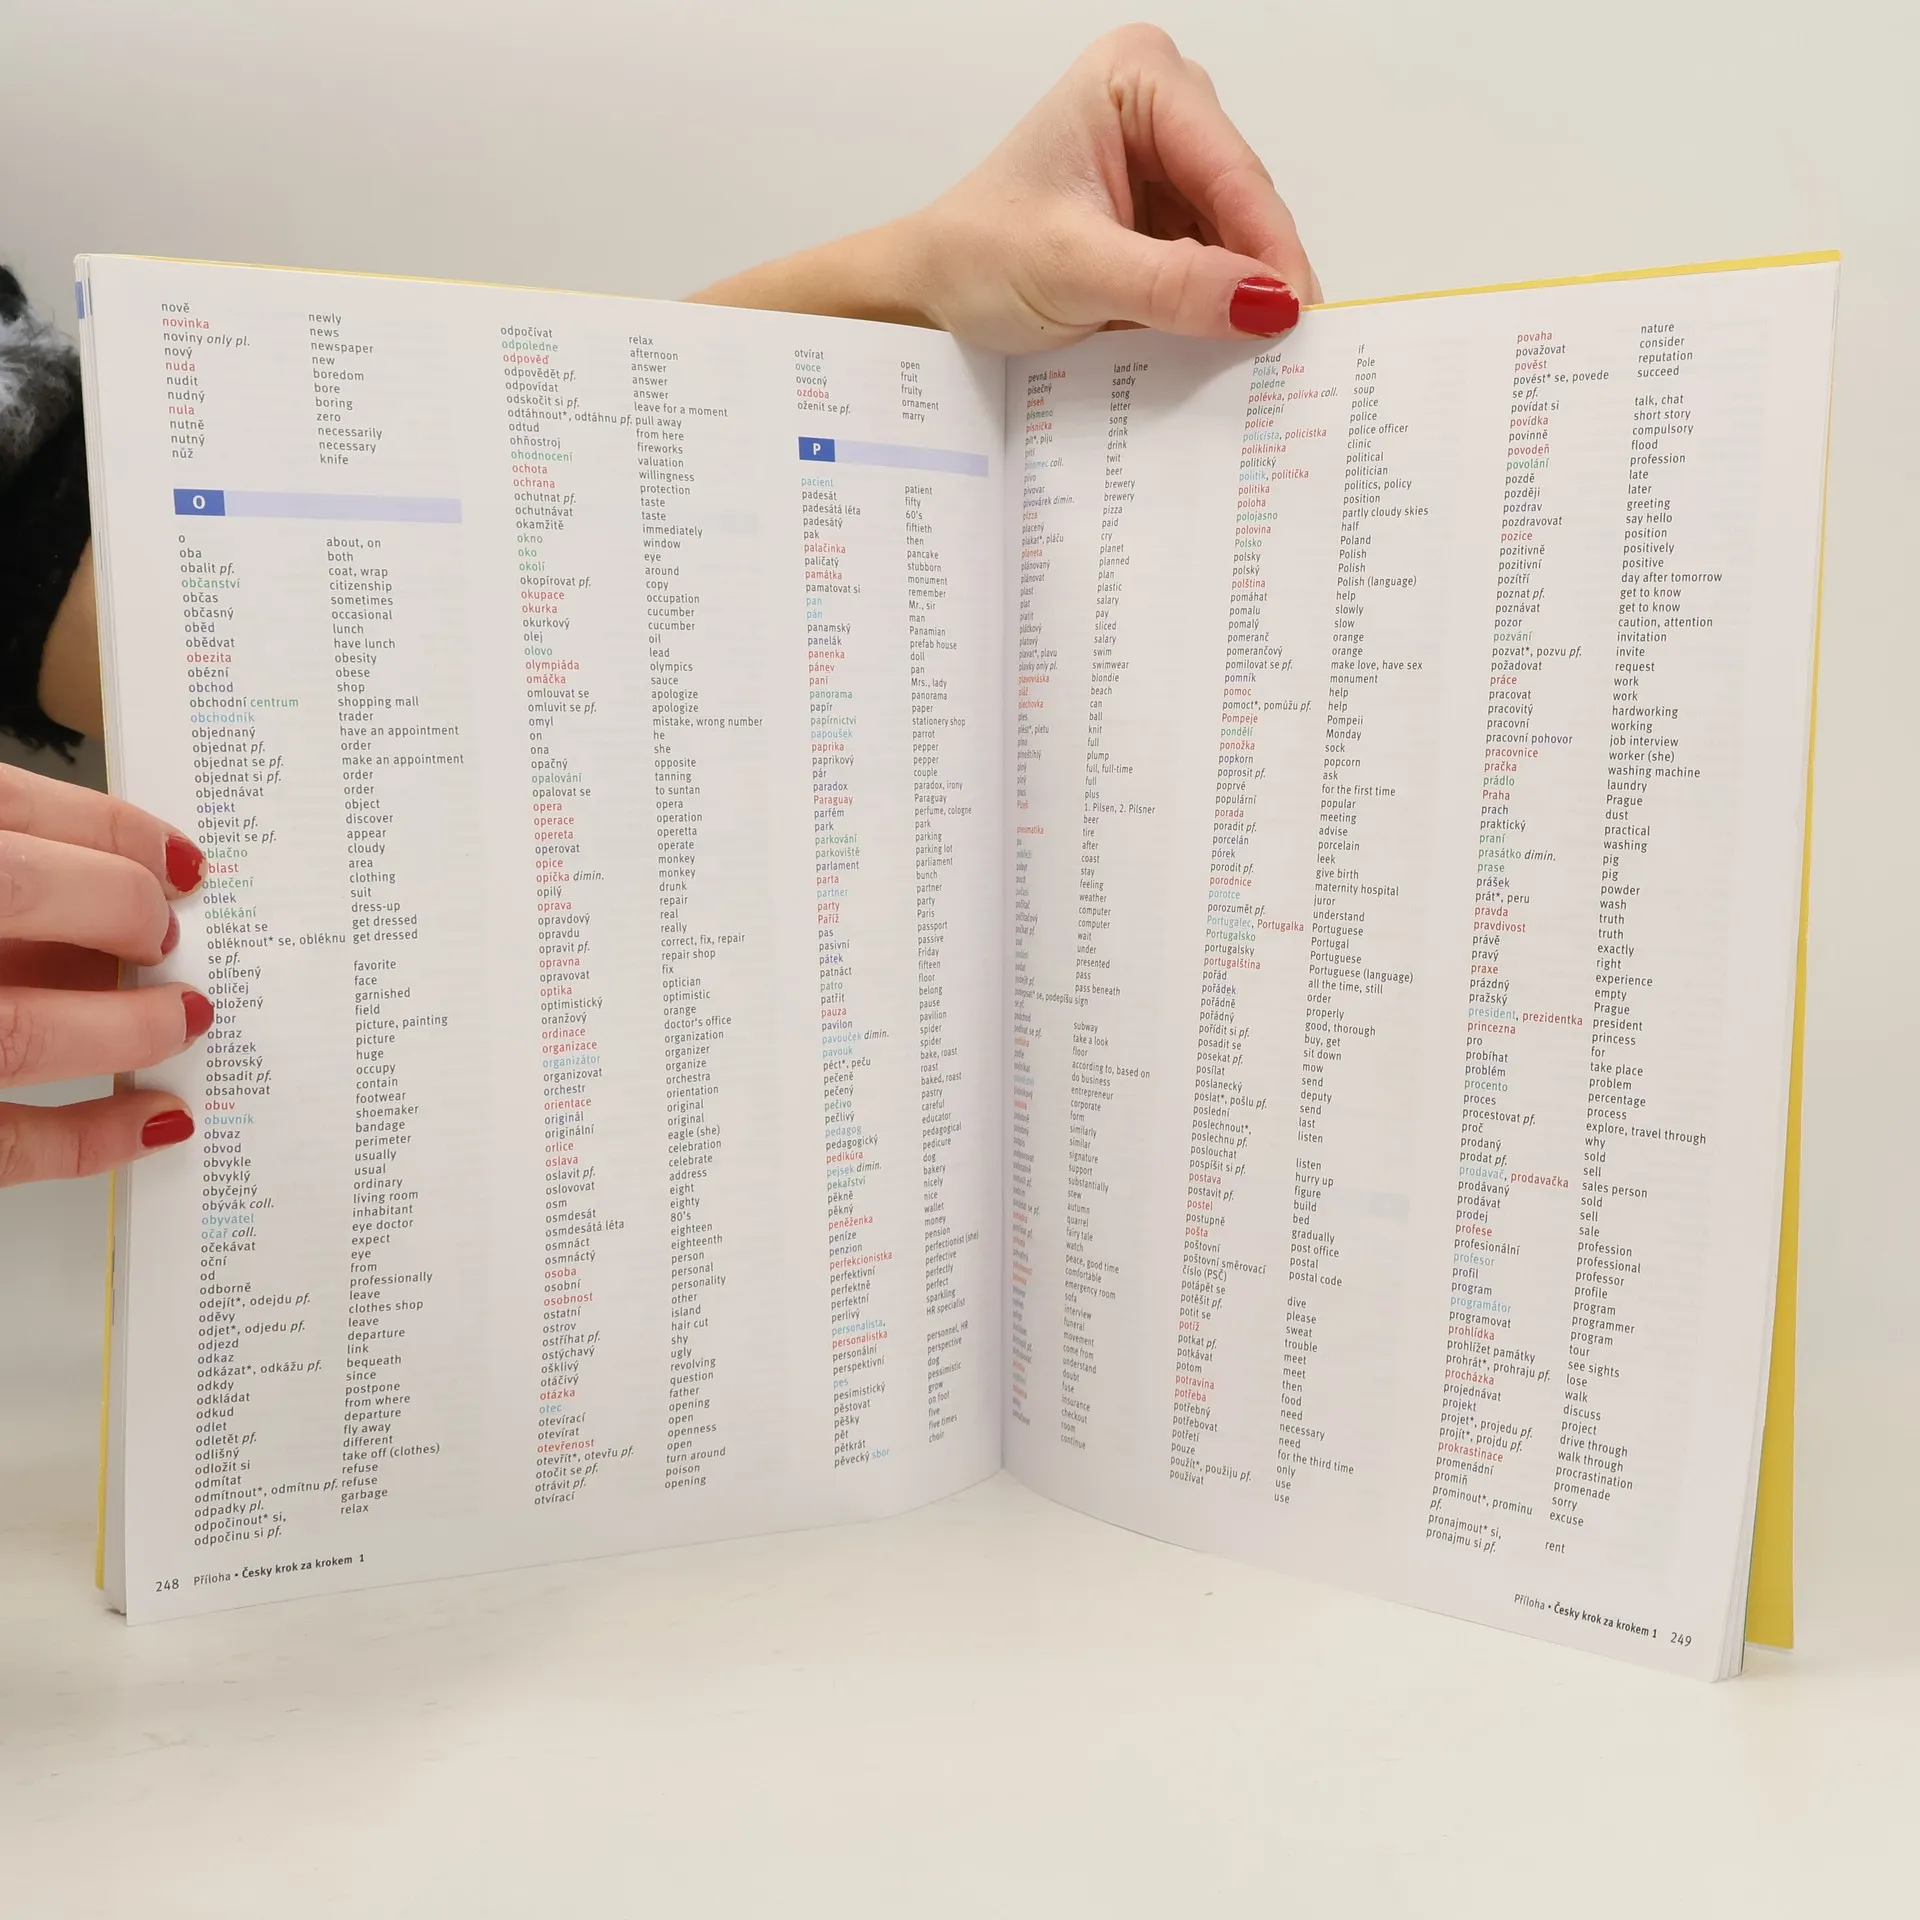 nově newly
novinka news
noviny only pl. newspaper
nový new
nuda boredom
nudit bore
nudný boring
nula zero
nutně necessarily
nutný necessary
nůž knife
O
o about, on
oba both
obalit pf. coat, wrap
občanství citizenship
občas sometimes
občasný occasional
oběd lunch
obědvat have lunch
obezita obesity
obézní obese
obchod shop
obchodní centrum shopping mall
obchodník trader
objednaný have an appointment
objednat pf. order
objednat se pf. make an appointment
objednat si pf. order
objednávat order
objekt object
objevit pf. discover
objevit se pf. appear
oblačno cloudy
oblast area
oblečení clothing
oblek suit
oblékání dress-up
oblékat se get dressed
obléknout* se, obléknu get dressed
se pf.
oblíbený favorite
obličej face
obložený garnished
obor field
obraz picture, painting
obrázek picture
obrovský huge
obsadit pf. occupy
obsahovat contain
obuv footwear
obuvník shoemaker
obvaz bandage
obvod perimeter
obvykle usually
obvyklý usual
obyčejný ordinary
obývák coll. living room
obyvatel inhabitant
očař coll. eye doctor
očekávat expect
oční eye
od from
odborně professionally
odejít*, odejdu pf. leave
oděvy clothes shop
odjet*, odjedu pf. leave
odjezd departure
odkaz link
odkázat*, odkážu pf. bequeath
odkdy since
odkládat postpone
odkud from where
odlet departure
odletět pf. fly away
odlišný different
odložit si take off (clothes)
odmítat refuse
odmítnout*, odmítnu pf. refuse
odpadky pl. garbage
odpočinout* si, relax
odpočinu si pf.
odpočívat relax
odpoledne afternoon
odpověď answer
odpovědět pf. answer
odpovídat answer
odskočit si pf. leave for a moment
odtáhnout*, odtáhnu pf. pull away
odtud from here
ohňostroj fireworks
ohodnocení valuation
ochota willingness
ochrana protection
ochutnat pf. taste
ochutnávat taste
okamžitě immediately
okno window
oko eye
okolí around
okopírovat pf. copy
okupace occupation
okurka cucumber
okurkový cucumber
olej oil
olovo lead
olympiáda olympics
omáčka sauce
omlouvat se apologize
omluvit se pf. apologize
omyl mistake, wrong number
on he
ona she
opačný opposite
opalování tanning
opalovat se to suntan
opera opera
operace operation
opereta operetta
operovat operate
opice monkey
opička dimin. monkey
opilý drunk
oprava repair
opravdový real
opravdu really
opravit pf. correct, fix, repair
opravna repair shop
opravovat fix
optika optician
optimistický optimistic
oranžový orange
ordinace doctor's office
organizace organization
organizátor organizer
organizovat organize
orchestr orchestra
orientace orientation
originál original
originální original
orlice eagle (she)
oslava celebration
oslavit pf. celebrate
oslovovat address
osm eight
osmdesát eighty
osmdesátá léta 80's
osmnáct eighteen
osmnáctý eighteenth
osoba person
osobní personal
osobnost personality
ostatní other
ostrov island
ostříhat pf. hair cut
ostýchavý shy
ošklivý ugly
otáčivý revolving
otázka question
otec father
otevírací opening
otevírat open
otevřenost openness
otevřít*, otevřu pf. open
otočit se pf. turn around
otrávit pf. poison
otvírací opening
otvírat open
ovoce fruit
ovocný fruity
ozdoba ornament
oženit se pf. marry
P
pacient patient
padesát fifty
padesátá léta 60's
padesátý fiftieth
pak then
palačinka pancake
paličatý stubborn
památka monument
pamatovat si remember
pan Mr., sir
pán man
panamský Panamian
panelák prefab house
panenka doll
pánev pan
paní Mrs., lady
panorama panorama
papír paper
papírnictví stationery shop
papoušek parrot
paprika pepper
paprikový pepper
pár couple
paradox paradox, irony
Paraguay Paraguay
parfém perfume, cologne
park park
parkování parking
parkoviště parking lot
parlament parliament
parta bunch
partner partner
party party
Paříž Paris
pas passport
pasivní passive
pátek Friday
patnáct fifteen
patro floor
patřit belong
pauza pause
pavilon pavilion
pavouček dimin. spider
pavouk spider
péct*, peču bake, roast
pečeně roast
pečený baked, roast
pečivo pastry
pečlivý careful
pedagog educator
pedagogický pedagogical
pedikúra pedicure
pejsek dimin. dog
pekařství bakery
pěkně nicely
pěkný nice
peněženka wallet
peníze money
penzion pension
perfekcionistka perfectionist (she)
perfektivní perfective
perfektně perfectly
perfektní perfect
perlivý sparkling
personalista, HR specialist
personalistka
personální personnel, HR
perspektivní perspective
pes dog
pesimistický pessimistic
pěstovat grow
pěšky on foot
pět five
pětkrát five times
pěvecký sbor choir
248 Příloha • Česky krok za krokem 1
pevná linka land line
písečný sandy
píseň song
písmeno letter
písnička song
pít*, piju drink
pití drink
coll. twit
pivo beer
pivovar brewery
pivovárek dimin. brewery
pizza pizza
placený paid
plakat*, pláču cry
planeta planet
plánovaný planned
plánovat plan
plast plastic
plat salary
platit pay
plátkový sliced
platový salary
plavat*, plavu swim
plavky only pl. swimwear
plavovláska blondie
pláž beach
plechovka can
ples ball
plést*, pletu knit
plno full
plnoštíhlý plump
plný full, full-time
plný full
plus plus
Plzeň 1. Pilsen, 2. Pilsner
beer
pneumatika tire
po after
coast
stay
feeling
weather
počítač computer
počítačový computer
wait
under
presented
pass
pass beneath
podepsat* se, podepíšu sign
se pf.
subway
take a look
floor
according to, based on
do business
entrepreneur
corporate
form
similarly
similar
signature
support
substantially
stew
autumn
quarrel
fairy tale
watch
peace, good time
comfortable
emergency room
sofa
interview
funeral
movement
come from
understand
doubt
fuse
insurance
checkout
room
continue
pokud if
Polák, Polka Pole
poledne noon
polévka, polívka coll. soup
policejní police
policie police
policista, policistka police officer
poliklinika clinic
politický political
politik, politička politician
politika politics, policy
poloha position
polojasno partly cloudy skies
polovina half
Polsko Poland
polsky Polish
polský Polish
polština Polish (language)
pomáhat help
pomalu slowly
pomalý slow
pomeranč orange
pomerančový orange
pomilovat se pf. make love, have sex
pomník monument
pomoc help
pomoct*, pomůžu pf. help
Pompeje Pompeii
pondělí Monday
ponožka sock
popkorn popcorn
poprosit pf. ask
poprvé for the first time
populární popular
porada meeting
poradit pf. advise
porcelán porcelain
pórek leek
porodit pf. give birth
porodnice maternity hospital
porotce juror
porozumět pf. understand
Portugalec, Portugalka Portuguese
Portugalsko Portugal
portugalsky Portuguese
portugalština Portuguese (language)
pořád all the time, still
pořádek order
pořádně properly
pořádný good, thorough
pořídit si pf. buy, get
posadit se sit down
posekat pf. mow
posílat send
poslanecký deputy
poslat*, pošlu pf. send
poslední last
poslechnout*, listen
poslechnu pf.
poslouchat listen
pospíšit si pf. hurry up
postava figure
postavit pf. build
postel bed
postupně gradually
pošta post office
poštovní postal
poštovní směrovací postal code
číslo (PSČ)
potápět se dive
potěšit pf. please
potit se sweat
potíž trouble
potkat pf. meet
potkávat meet
potom then
potravina food
potřeba need
potřebný necessary
potřebovat need
potřetí for the third time
pouze only
použít*, použiju pf. use
používat use
povaha nature
považovat consider
pověst reputation
povést* se, povede succeed
se pf.
povídat si talk, chat
povídka short story
povinně compulsory
povodeň flood
povolání profession
pozdě late
později later
pozdrav greeting
pozdravovat say hello
pozice position
pozitivně positively
pozitivní positive
pozítří day after tomorrow
poznat pf. get to know
poznávat get to know
pozor caution, attention
pozvání invitation
pozvat*, pozvu pf. invite
požadovat request
práce work
pracovat work
pracovitý hardworking
pracovní working
pracovní pohovor job interview
pracovnice worker (she)
pračka washing machine
prádlo laundry
Praha Prague
prach dust
praktický practical
praní washing
prasátko dimin. pig
prase pig
prášek powder
prát*, peru wash
pravda truth
pravdivost truth
právě exactly
pravý right
praxe experience
prázdný empty
pražský Prague
president, prezidentka president
princezna princess
pro for
probíhat take place
problém problem
procento percentage
proces process
procestovat pf. explore, travel through
proč why
prodaný sold
prodat pf. sell
prodavač, prodavačka sales person
prodávaný sold
prodávat sell
prodej sale
profese profession
profesionální professional
profesor professor
profil profile
program program
programátor programmer
programovat program
prohlídka tour
prohlížet památky see sights
prohrát*, prohraju pf. lose
procházka walk
projednávat discuss
projekt project
projet*, projedu pf. drive through
projít*, projdu pf. walk through
prokrastinace procrastination
promenádní promenade
promiň sorry
prominout*, prominu excuse
pf.
pronajmout* si,
pronajmu si pf. rent
Příloha • Česky krok za krokem 1 249